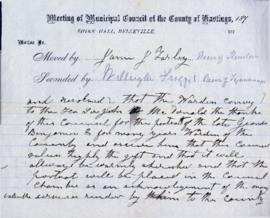 Meeting of Municipal Council of the County of Hastings, 187
SHIRE HALL, BELLEVILLE,
Moved by
Seconded by
and resolved that the Warden convey
to the thanks
of this Council for the portrait of the late George
Benjamin for many years Warden of the
County and assure him that the Council
value highly the gift and that it will
always be and that the
portrait will be placed in the Council
Chamber as an acknowledgement of the
valuable services render by him to the County